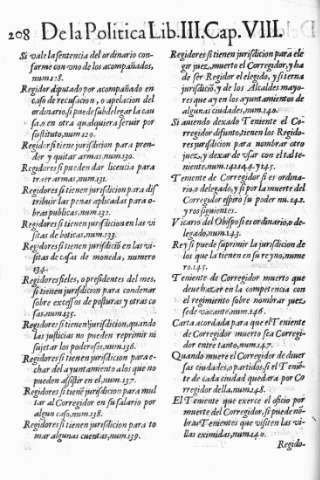 208 De la Politica Lib. III. Cap. VIII.
Si vale la sentencia del ordinario con-
forme con vno de los acompañados,
num.128.
Regidor diputado por acompañado en
caso de recusacion, o apelacion del
ordinario, si puede subdelegar la cau
sa, o en otra qualquiera seruir por
sustituto, num.129.
Regidor si tiene jurisdicion para pren-
der y quitar armas, num.130.
Regidores si pueden dar licencia para
traer armas, num.131.
Regidores si tienen jurisdicion para dis
tribuir las penas aplicadas para o-
bras publicas, num.132.
Regidores si tienen jurisdicion en las vi
sitas de boticas, num.133.
Regidores si tienen jurisdició en las vi-
sitas de casas de moneda, numero
134.
Regidores fieles, o presidentes del mes,
si tienen jurisdicion para condenar
sobre excessos de posturas y otras co
sas, num.135.
Regidores si tienen jurisdicion, quando
las justicias no pueden reprimir ni
sujetar los poderosos, num.136.
Regidores si tienen jurisdicion para e-
char del ayuntamiento a los que no
pueden assistir en el, num.137.
Regidores si tiené jurisdicion para mul
tar al Corregidor en su salario por
algun caso, num.138.
Regidores si tienen jurisdicion para to
mar algunas cuentas, num.139.
Regidores si tienen jurisdicion para ele
gir juez, muerto el Corregidor, y ha
de ser Regidor el elegido, y si terna
jurisdició, y de los Alcaldes mayo-
res que ay en los ayuntamientos de
algunas ciudades, num.140.
Si auiendo dexado Teniente el Co-
rregidor difunto, tienen los Regido-
res jurisdicion para nombrar otro
juez, y dexar de vsar con el tal te-
niente, num.141.144. y 145.
Teniente de Corregidor si es ordina-
rio, o delegado, y si por la muerte del
Corregidor espiro su poder nu.142.
y los siguientes.
Vicario del Obispo si es ordinario, o de-
legado, num.143.
Rey si puede suprimir la jurisdicion de
los que la tienen en su reyno, nume
ro.145.
Teniente de Corregidor muerto que
deue hazer en la competencia con
el regimiento sobre nombrar juez,
sede vacante. num.146.
Carta acordada para que el Teniente
de Corregidor muerto sea Corregi-
dor entre tanto, num.147.
Quando muere el Corregidor de diuer
sas ciudades, o partidos, si el Tenié-
te de cada ciudad quedara por Co
rregidor della, num.148.
El Teniente que exerce el oficio por
muerte del Corregidor, si puede nó-
brar Tenientes que visiten las vi-
llas eximidas, num.149.
Regido-